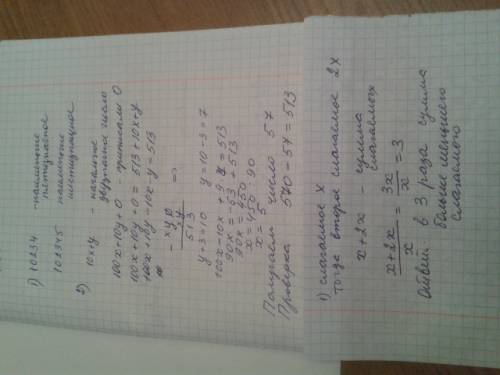 1) 10234 - наименьшее
пятизначное
102345 наименьшее
шестизначное
2) 10x+y - начальное
двузначное число
100x+10y+0 - приписали 0
100x+10y+0 = 513+10x+y
100x+10y-10x-y=513
- xy0
xy
513
=>
y+3=10 y=10-3=7
100x-10x+9y=513
90x=-63+513
90x=450
x=450:90
x=5
Получаем число 57
Проверка 570-57=513
1) слагаемое x
тогда второе слагаемое 2x
x+2x - сумма
слагаемых
x+2x/x = 3x/x = 3
Ответ: в 3 раза сумма
больше меньшего
слагаемого